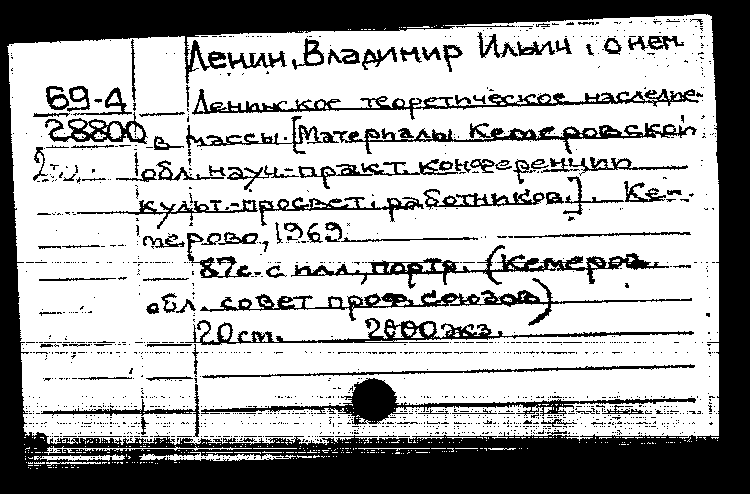 Ленин, Владимир Ильич, о нем
69-4
Ленинское теоретическое наследие
28800 в массы. [Материалы Кемеровской
обл. науч.-практ. конференции
культ.-просвет. работников.]. Ке-
мерово, 1969.
87с. с илл., портр. (Кемеров.
обл. совет проф. союзов)
20 см. 2000 экз.